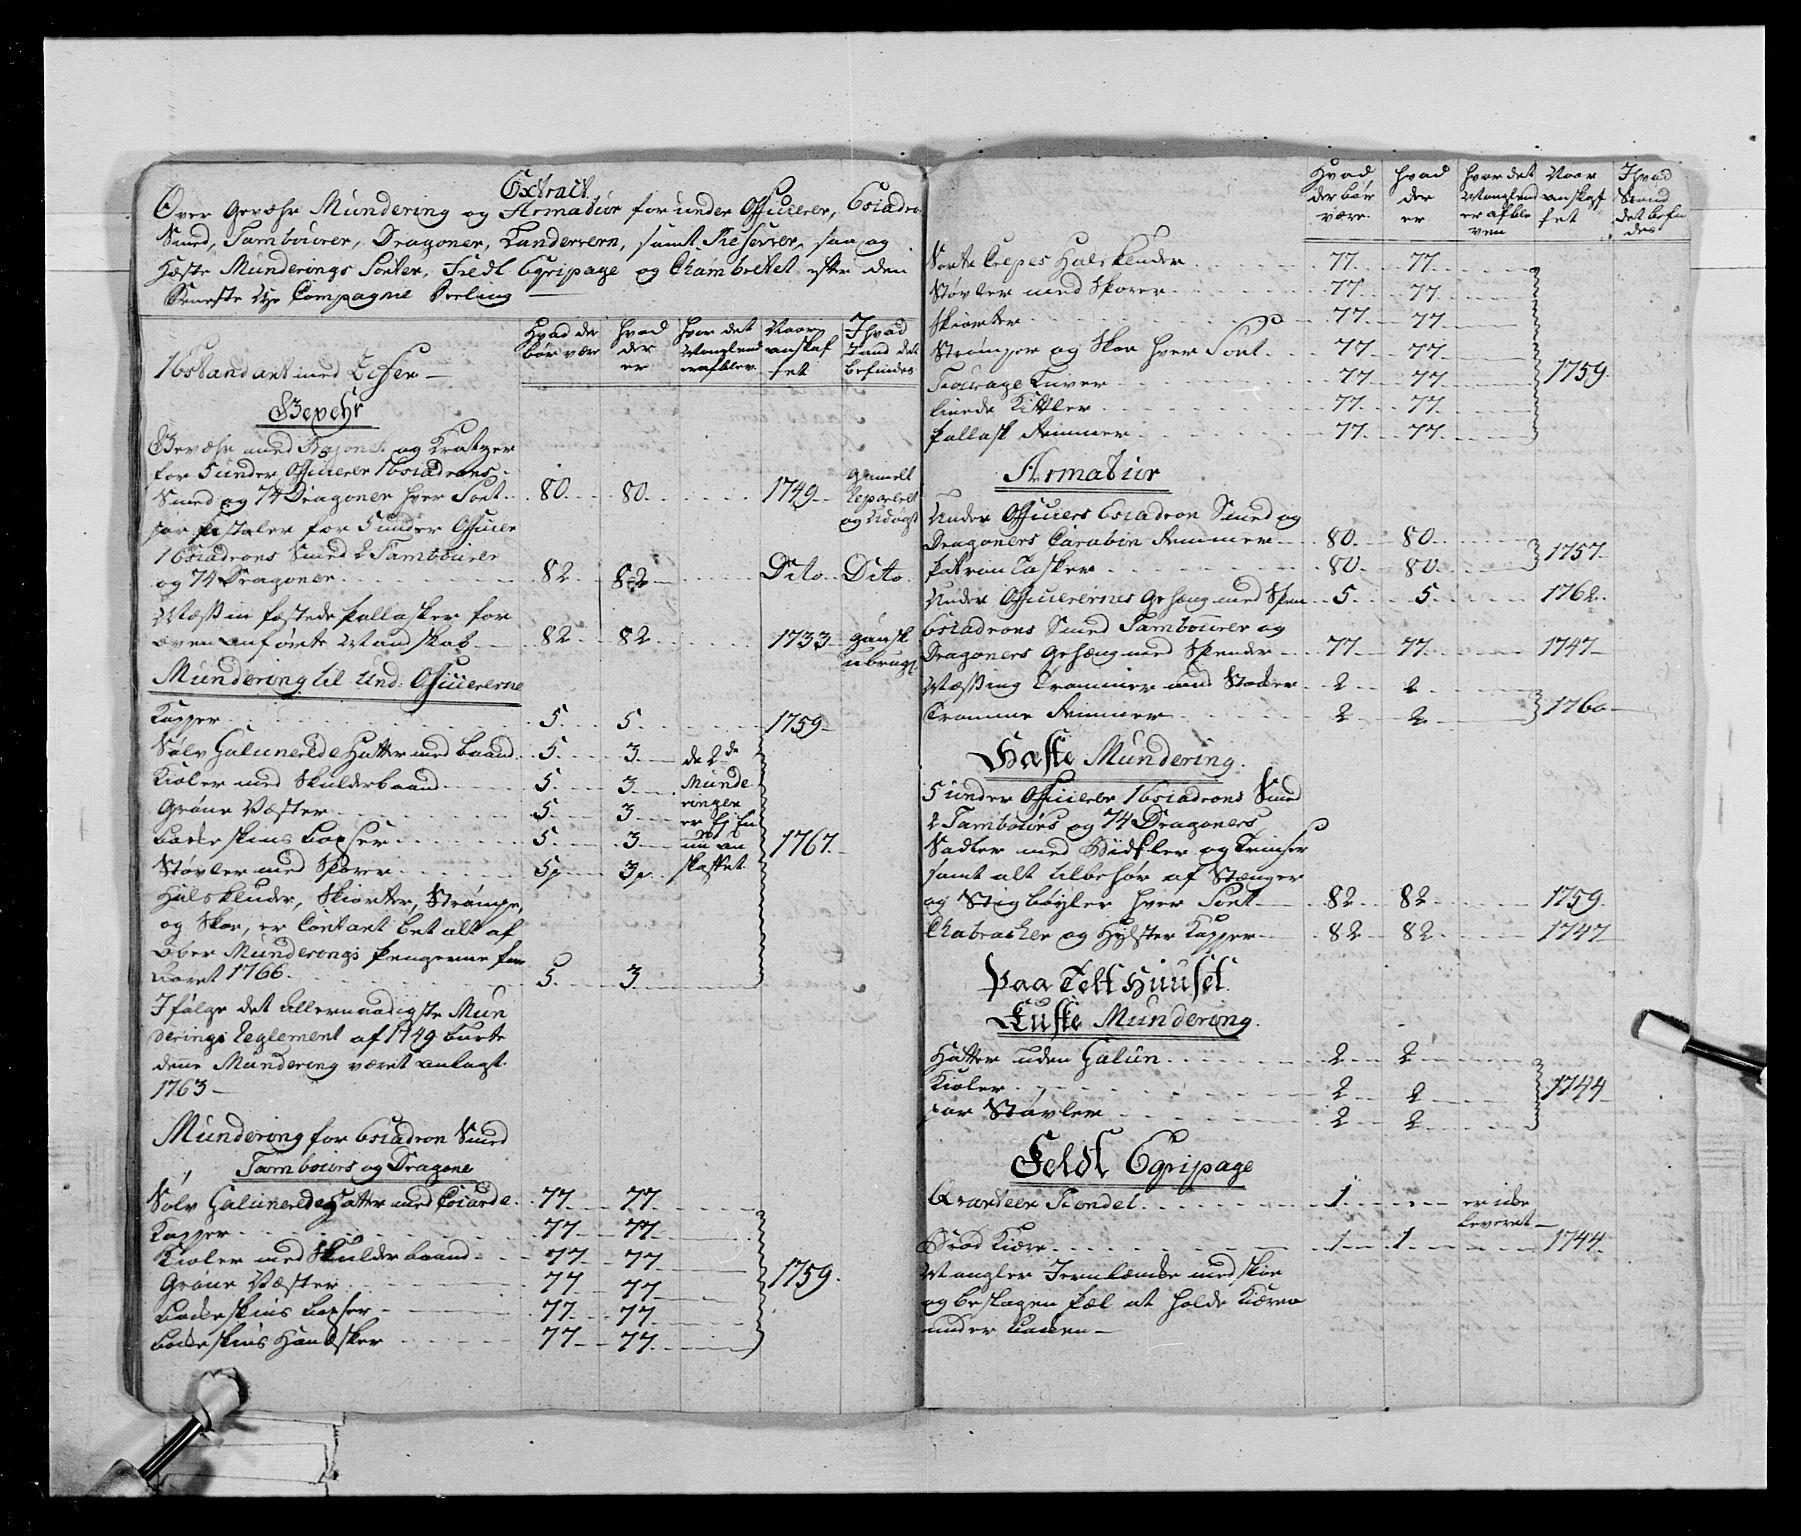 Extract
Over Gevæhr Mundering og Armatur for under Officierer, Escadro
Smed, Tambourer, Dragoner, Landevern, samt Reserver, saa og
Hæste Munderings Sorter, Feldt Eqvipage og Chambrettet efter den
Seneste Nye Compagnie Deeling
Hvad der bør være
hvad der er
hvor det Manglend er afblev
Naar anskaffet
I hvad Stand det befindes
1 Standart med Lisser
Gevehr
Gevæhr med Bajonet og Kratzer
for 5 under Officerer 1 Escadrons
Smed og 74 Dragoner hver Sort 80 80 1749 gamelt Reparert og Udøgt
par Pistoler for 5 under Officier
1 Escadrons Smed 2 Tambourer
og 74 Dragoner 82 82 Dito Dito
Mæssin fæstede pallasker for
oven anførte Mandskab 82 82 1733 gansk ubrugl
Mundering til Und: Officiererne
Kapper 5 5 1759
Sølv Galonerede Hatter med baand 5 3 de 2de
Kioler med Skulderbaand 5 3 Munde
Grønne Væster 5 3 ringer er Ej En
Bukkeskins Buxser 5 3 nu an 1767
Støvler med Sporer 5p 3p skaffet
Halsklude, Skiorter, Strømpe,
og Skoe, er Contant betalt af
Ober Munderings pengerne for
Aaret 1766 5 3
Ifølge det allernaadigste Mun
derings Reglement af 1749 burte
denne Mundering været anlagt
1763
Mundering for Escadron Smed
Tambours og Dragone
Sølv Galonerede Hatter med Cocarde 77 77
Kapper 77 77
Kioler med Skulderbaand 77 77
Grønne Væster 77 77 1759
Bukkeskins Buxser 77 77
Bukkeskins Handsker 77 77
Hvad der bør være
hvad der er
hvor det Manglend er afble ven
Naar anskaf fet
I hvad Stand det befin des
Sorte Crepes Halsklude 77 77
Støvler med Sporer 77 77
Skiorter 77 77
Strømper og Skoe hver Sort 77 77
Fourage Liner 77 77 1759
Linede Kittler 77 77
pallask Remmer 77 77
Armatur
Under Officers Escadron Smed og
Dragoners Carabin Remmer 80 80
patron Tasker 80 80 1757
Under Officierernes Gehæng med Spen 5 5 1762
Escadrons Smed Tambourer og
Dragoners Gehæng med Spender 77 77 1747
Mæssing Trommer med Stokker 2 2
Tromme Remmer 2 2 1760
Hæste Mundering
5 under Officierer 1 Escadrons Smed
2 Tambours og 74 Dragoners
Sadler med Bidsler og Trinser
samt alt tilbehør af Stænger
og Stigbøyler hver Sort 82 82 1759
Chabracher og Hylster Kapper 82 82 1747
paa Telt Huuset
Kuske Mundering
Hatter uden Galun 2 2
Kioler 2 2 1744
par Støvler 2 2
Feldt Eqvipage
Qvarteer Rondel 1 er ikke leveret
Brød Kiære 1 1 1744
Mangler Jernlænke med skoe
og beslagen pæl at holde Kiæren
under bakken